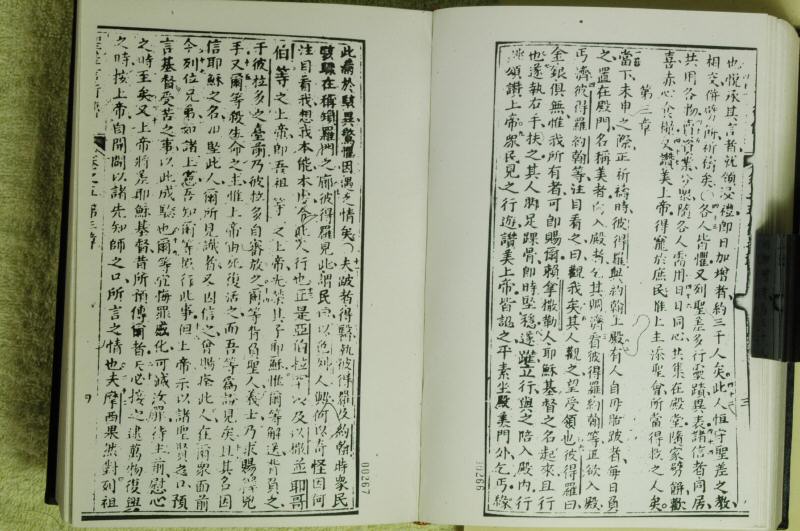 也悅承其言者就領受禮即日加增者約三千人矣此人恒守聖差之教
相交併分所祈衛矣各人皆懼又列聖差多行靈蹟異表諸信者同居
共用各物賣業分聚隨各人需用日日同心共集在殿堂隨家劈餅歡
喜赤心食糧又讚美上帝得寵於庶民惟上主添聖會所當得救之人矣
第三章
當下未申之際正祈禱時彼得羅與約翰上殿有人自母胎跛者每日負
之置在殿門名稱美者向入殿者乞其賙濟看彼得羅約翰等正欲入殿
丐濟彼得羅約翰等注目看之曰觀我矣其人觀之望受領也彼得羅曰
金銀俱無惟我所有者可即賜爾賴拿撒勒人耶穌基督之名起來且行
也遂執右手扶之其人脚足踝骨即時堅穩遂躍立行與之陪入殿內行
頌讚上帝衆民見之行遊讚美上帝皆認之平素坐殿美門外乞丐緣
三
00266
此痛於駭異驚懼因遇之情矣夫跛者得醫執彼得羅及約翰時衆民
驚驟在稱頌羅門之廊彼得羅見此謂民曰以色列人乎何以奇怪因何
注目看我想我本能本虔令此人行也正是亞伯拉罕以及以撒並耶哥
伯等之上帝即吾祖等之上帝先榮其子耶穌惟爾等解送背負之
于彼拉多之臺前乃彼拉多自審放之爾等背負聖人義士乃求賜𠒇
手又爾等殺生命之主惟上帝由死復活之而吾等為證見矣且其名因
信耶穌之名即堅此人爾所見識者又因信之曾賜痊此人在爾衆面前
今列位兄弟如諸上憲吾知爾等行此事但上帝示以諸聖賢之口預
言基督受苦之事以此成驗也爾等宜悔罪感化可滅汝罪待主前慰心
之時至矣又上帝將差耶穌基督昔所預傳爾者天必接之逮萬物復興
之時按上帝自開闢以諸先知師之口所言之情也夫摩西果然對列祖
00267